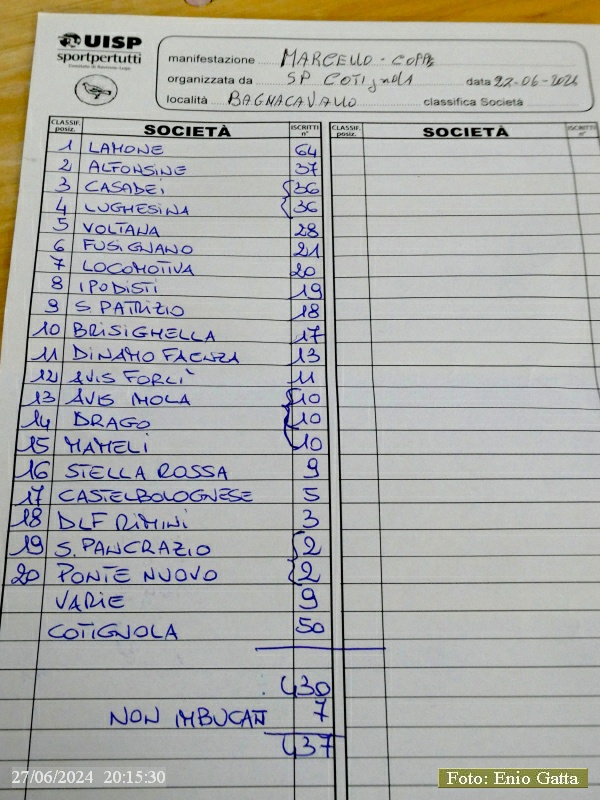 UISP
sportpertutti
manifestazione MARCELLO - COPPE
organizzata da SP COTIGNOLA data 22-06-2024
località BAGNACAVALLO classifica Società
CLASSIF. posiz. SOCIETÀ ISCRITTI n° CLASSIF. posiz. SOCIETÀ ISCRITTI n°
1 LAMONE 64
2 ALFONSINE 37
3 CASADEI 36
4 LUGHESINA 36
5 VOLTANA 28
6 FUSIGNANO 21
7 LOCOMOTIVA 20
8 IPODISTI 19
9 S. PATRIZIO 18
10 BRISIGHELLA 17
11 DINAMO FAENZA 13
12 AVIS FORLI' 11
13 AVIS IMOLA 10
14 DRAGO 10
15 MAMELI 10
16 STELLA ROSSA 9
17 CASTELBOLOGNESE 5
18 DLF RIMINI 3
19 S. PANCRAZIO 2
20 PONTE NUOVO 2
VARIE 9
COTIGNOLA 50
430
NON IMBUCATI 7
437
27/06/2024 20:15:30
Foto: Enio Gatta